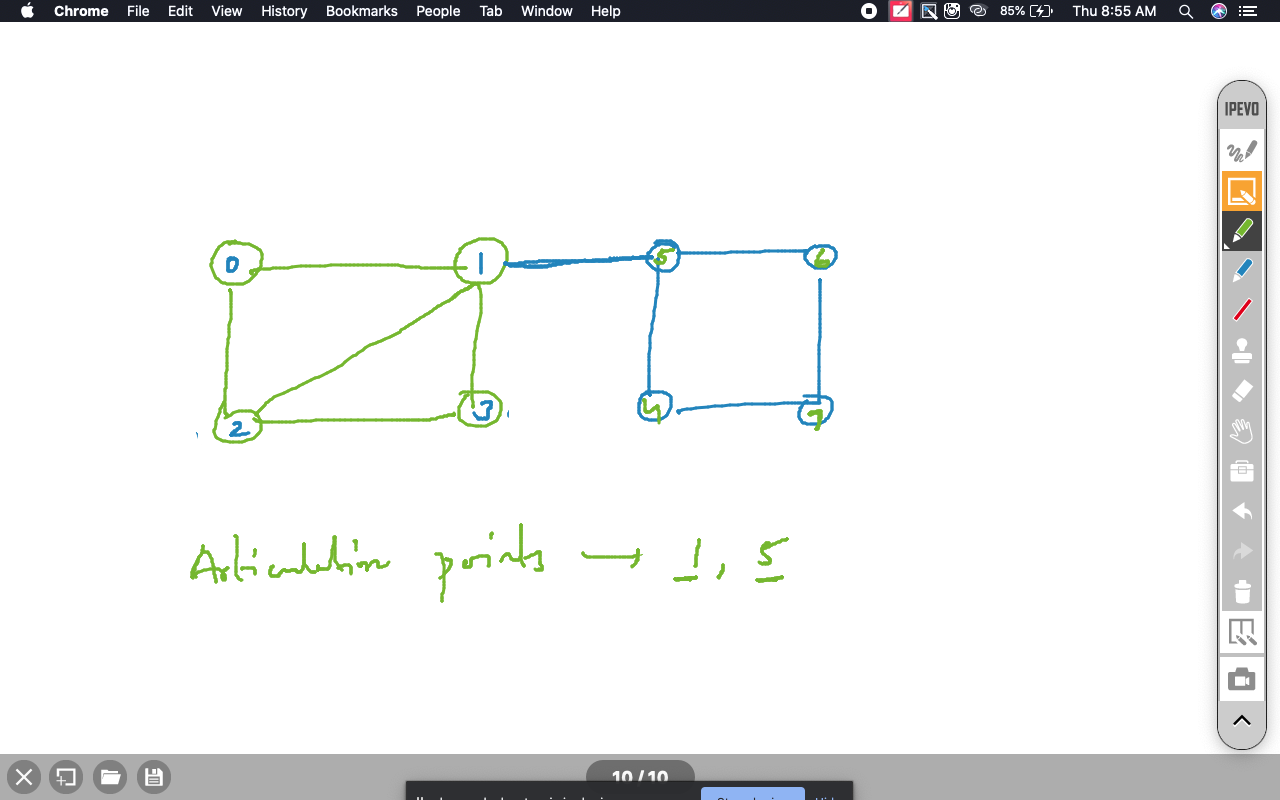 Chrome File Edit View History Bookmarks People Tab Window Help 85% Thu 8:55 AM
IPEVO
0 1 5 6
2 3 4 7
Articulation points → 1, 5
10 / 10